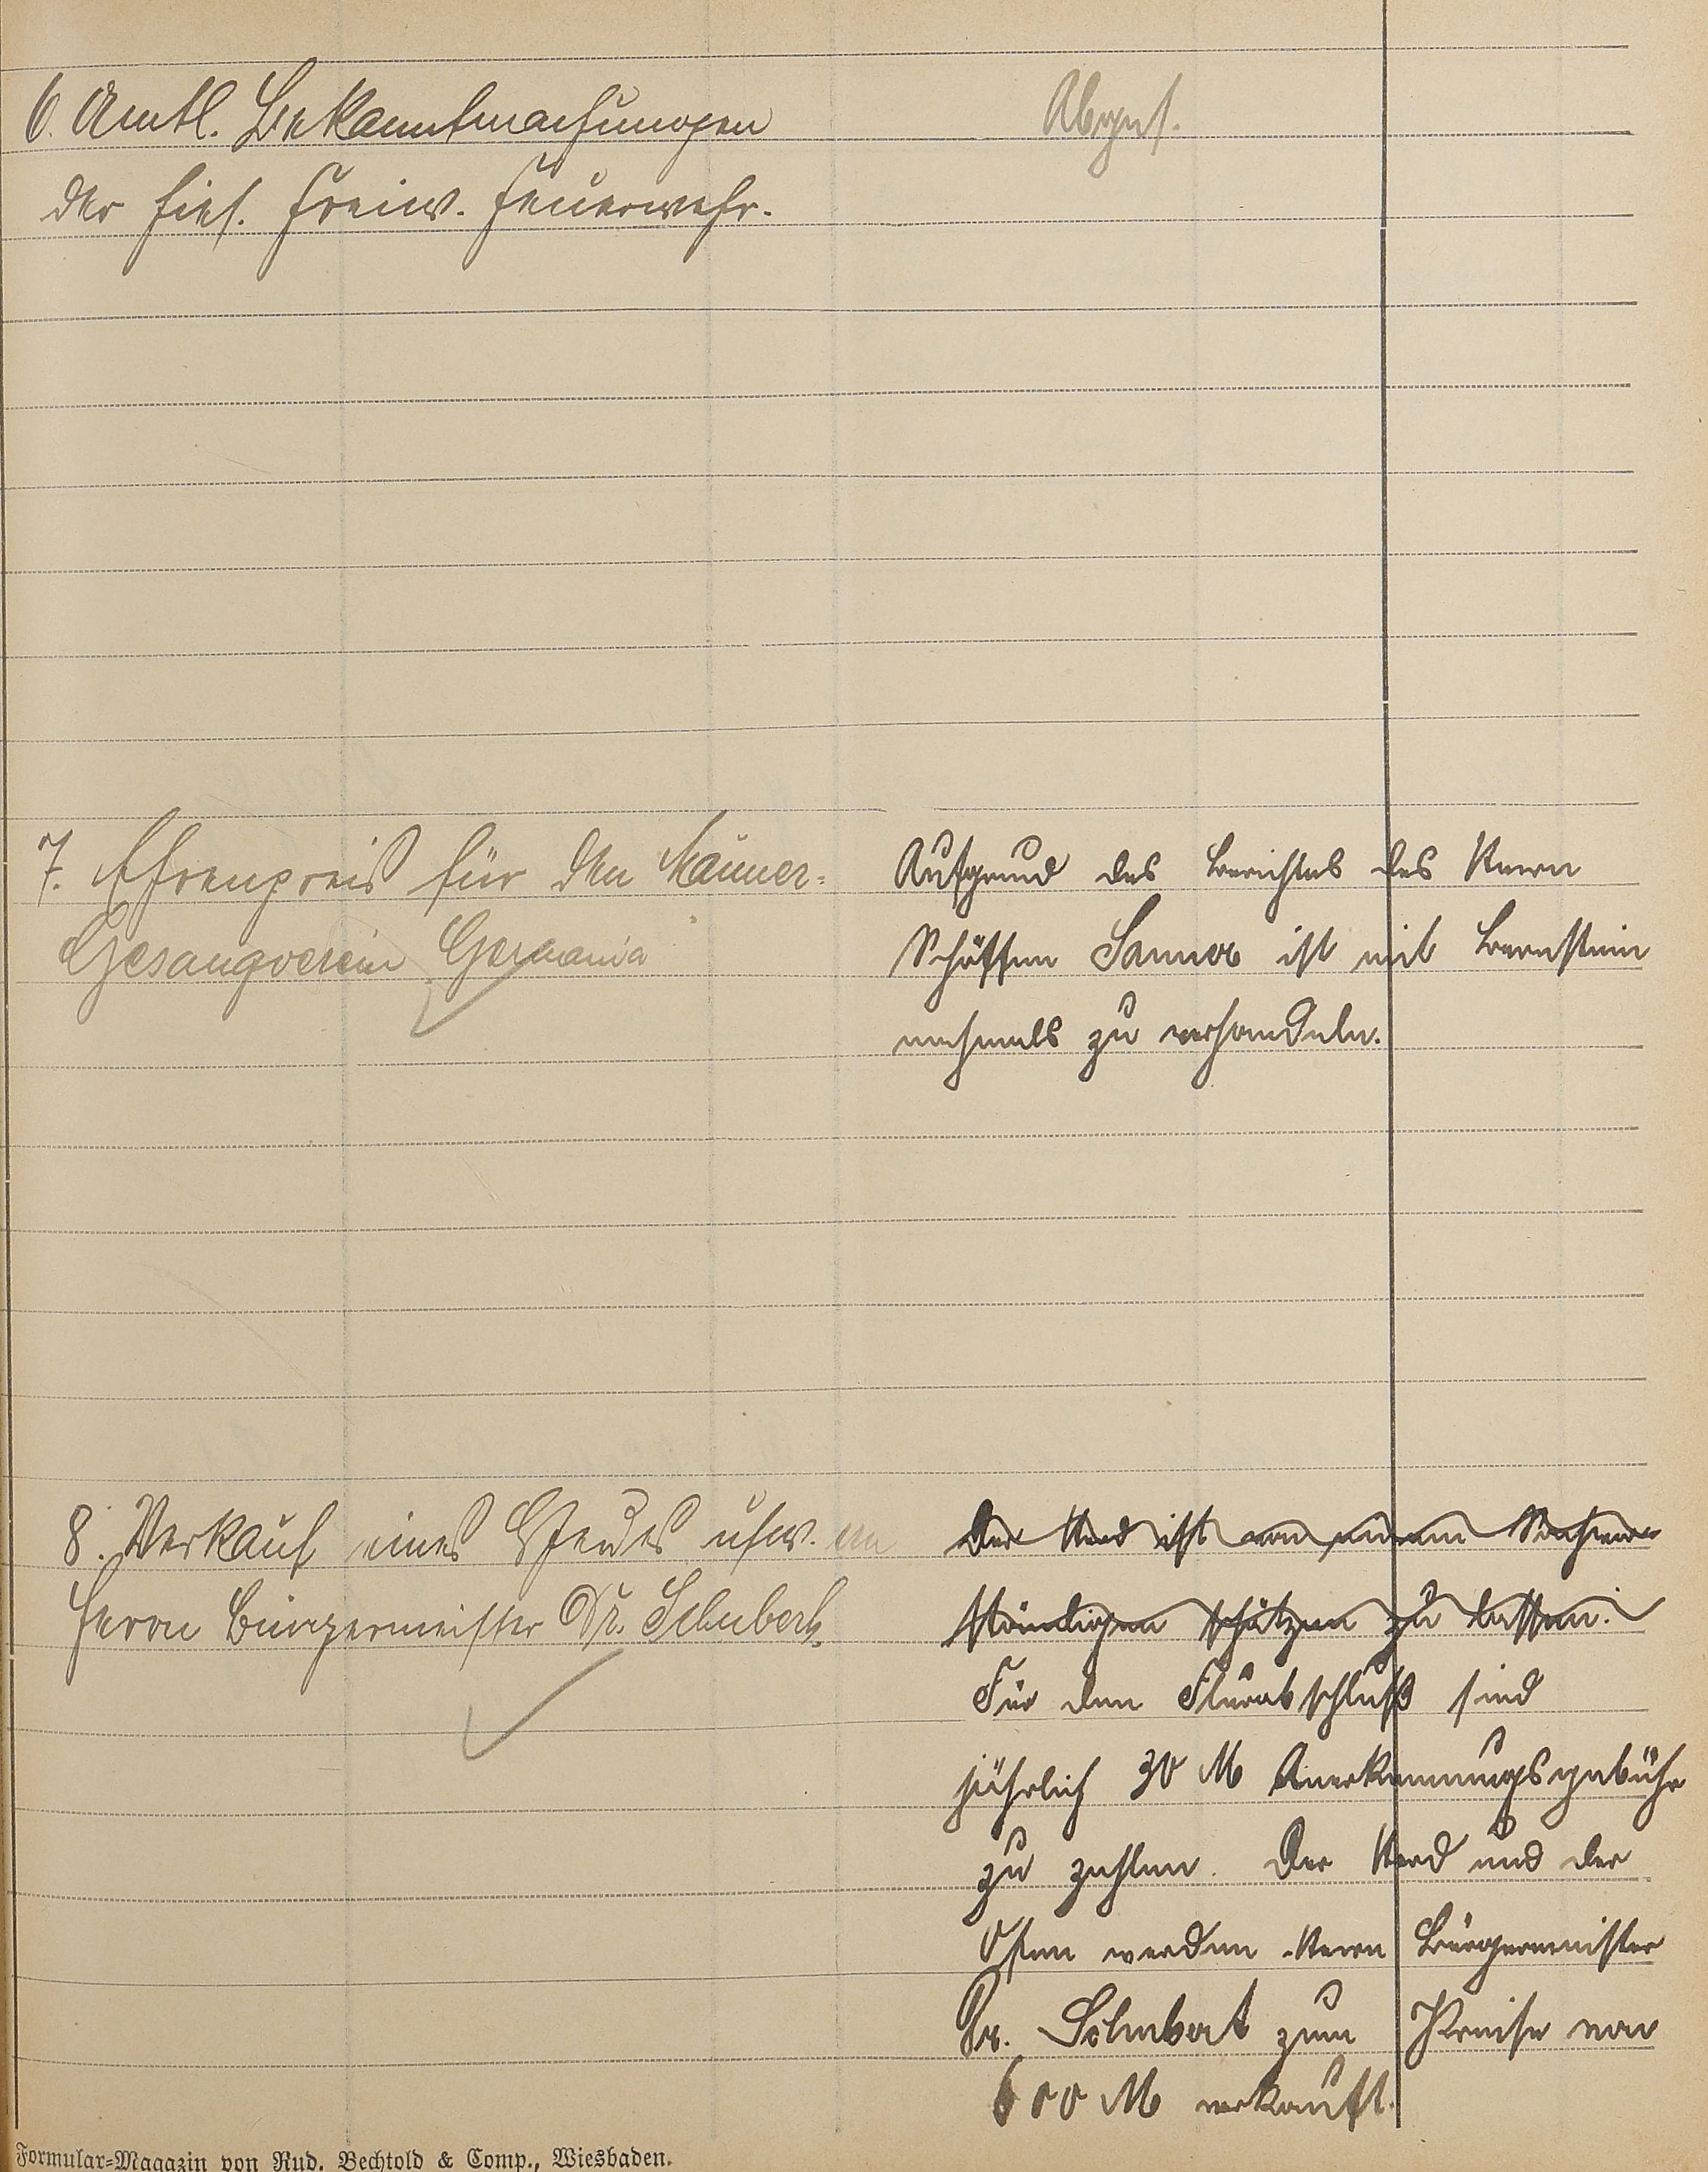 6. Amtl. Bekanntmachungen
der hies. Freiw. Feuerwehr.
Abges.
7. Ehrenpreis für den Männer-
Gesangverein Germania"
Aufgrund des Berichtes des Herrn
Schöffen Sauer ist mit Bernstein
nochmals zu verhandeln.
8. Verkauf eines Herdes usw. an
Herrn Bürgermeister Dr. Schubert.
Der Herd ist von einem Sachver-
ständigen schätzen zu lassen.
Für den Flurabschluß sind
jährlich 30 M Anerkennungsgebühr
zu zahlen. Der Herd und der
Ofen werden Herrn Bürgermeister
Dr. Schubert zum Preise von
600 M verkauft.
Formular-Magazin von Rud. Bechtold & Comp., Wiesbaden.